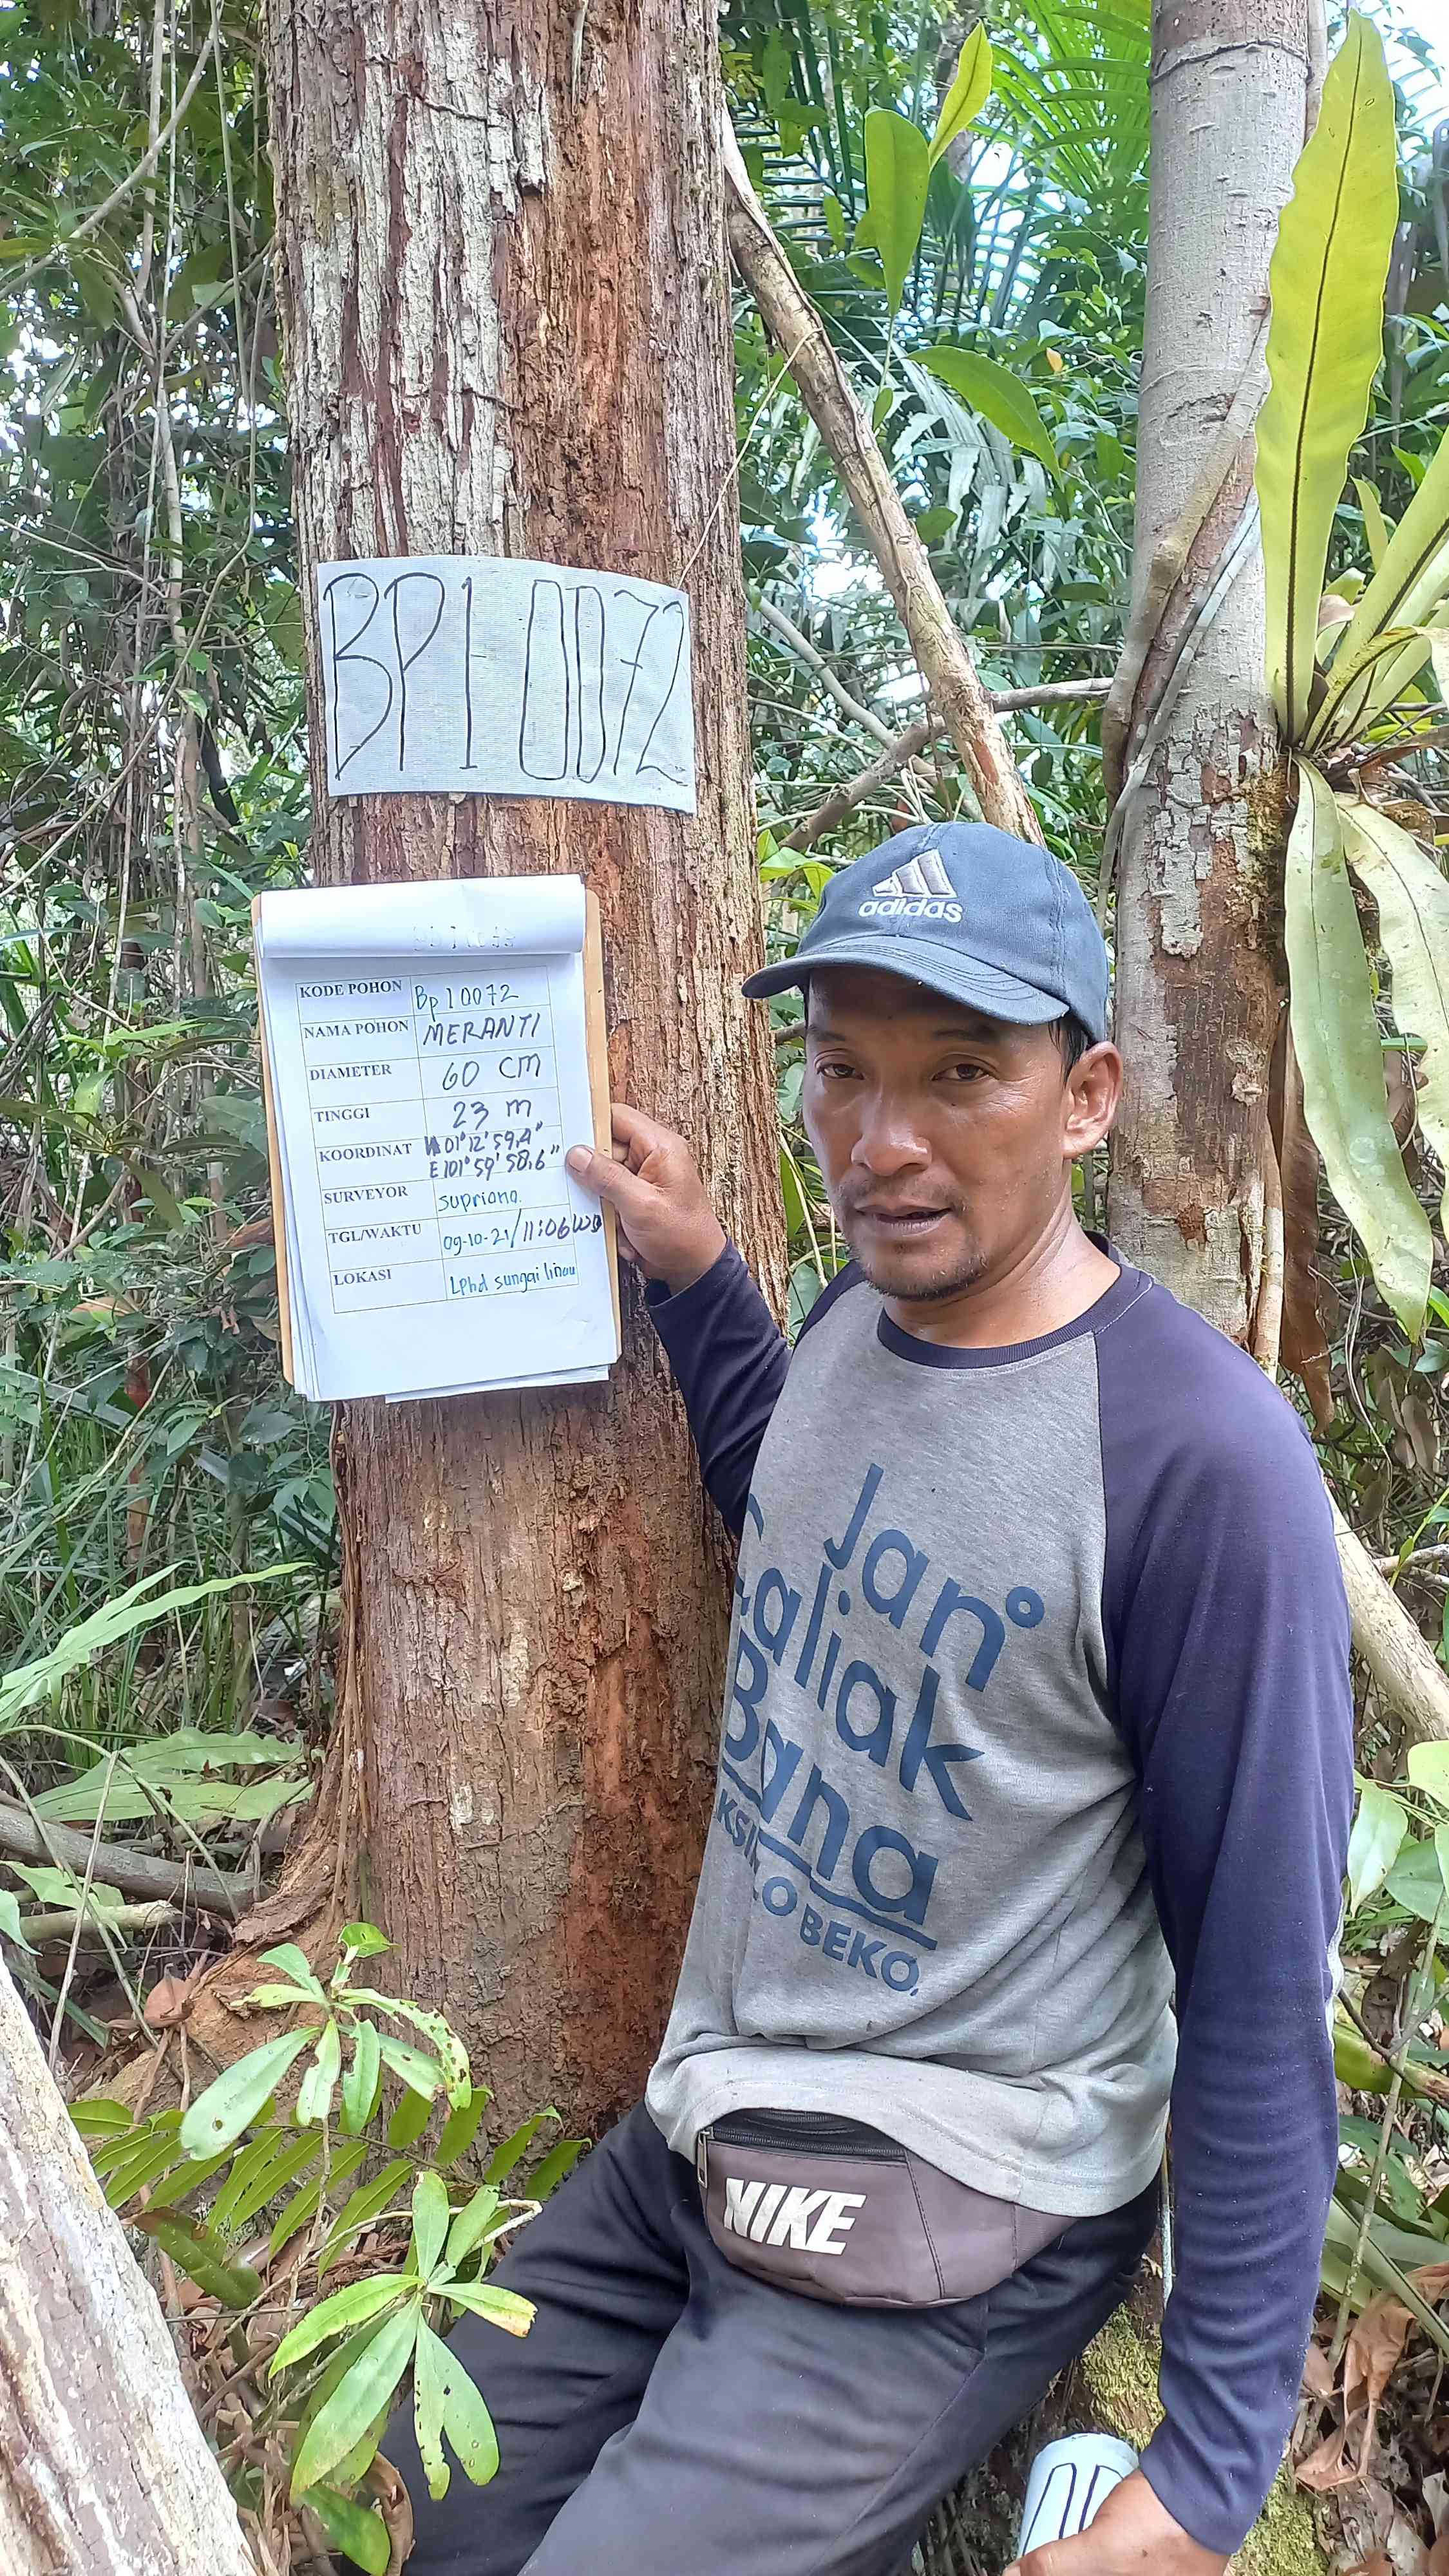 BP1 0072
KODE POHON Bp10072
NAMA POHON MERANTI
DIAMETER 60 CM
TINGGI 23 m
KOORDINAT N 01° 12' 59,4"
E 101° 59' 58,6"
SURVEYOR supriono.
TGL/WAKTU 09-10-21/11:06 WIB
LOKASI Lphd sungai linau
adidas
Jan°
Caliak
Bana
LO BEKO.
NIKE